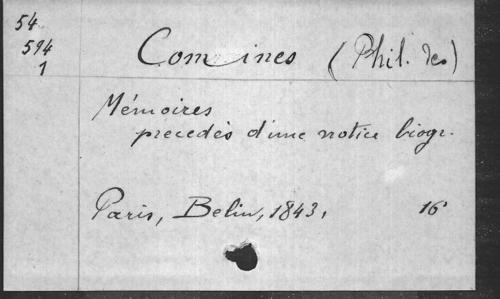 54
594
1
Comines (Phil. de)
Mémoires
precedés d'une notice biogr.
Paris, Belin, 1843, 16°